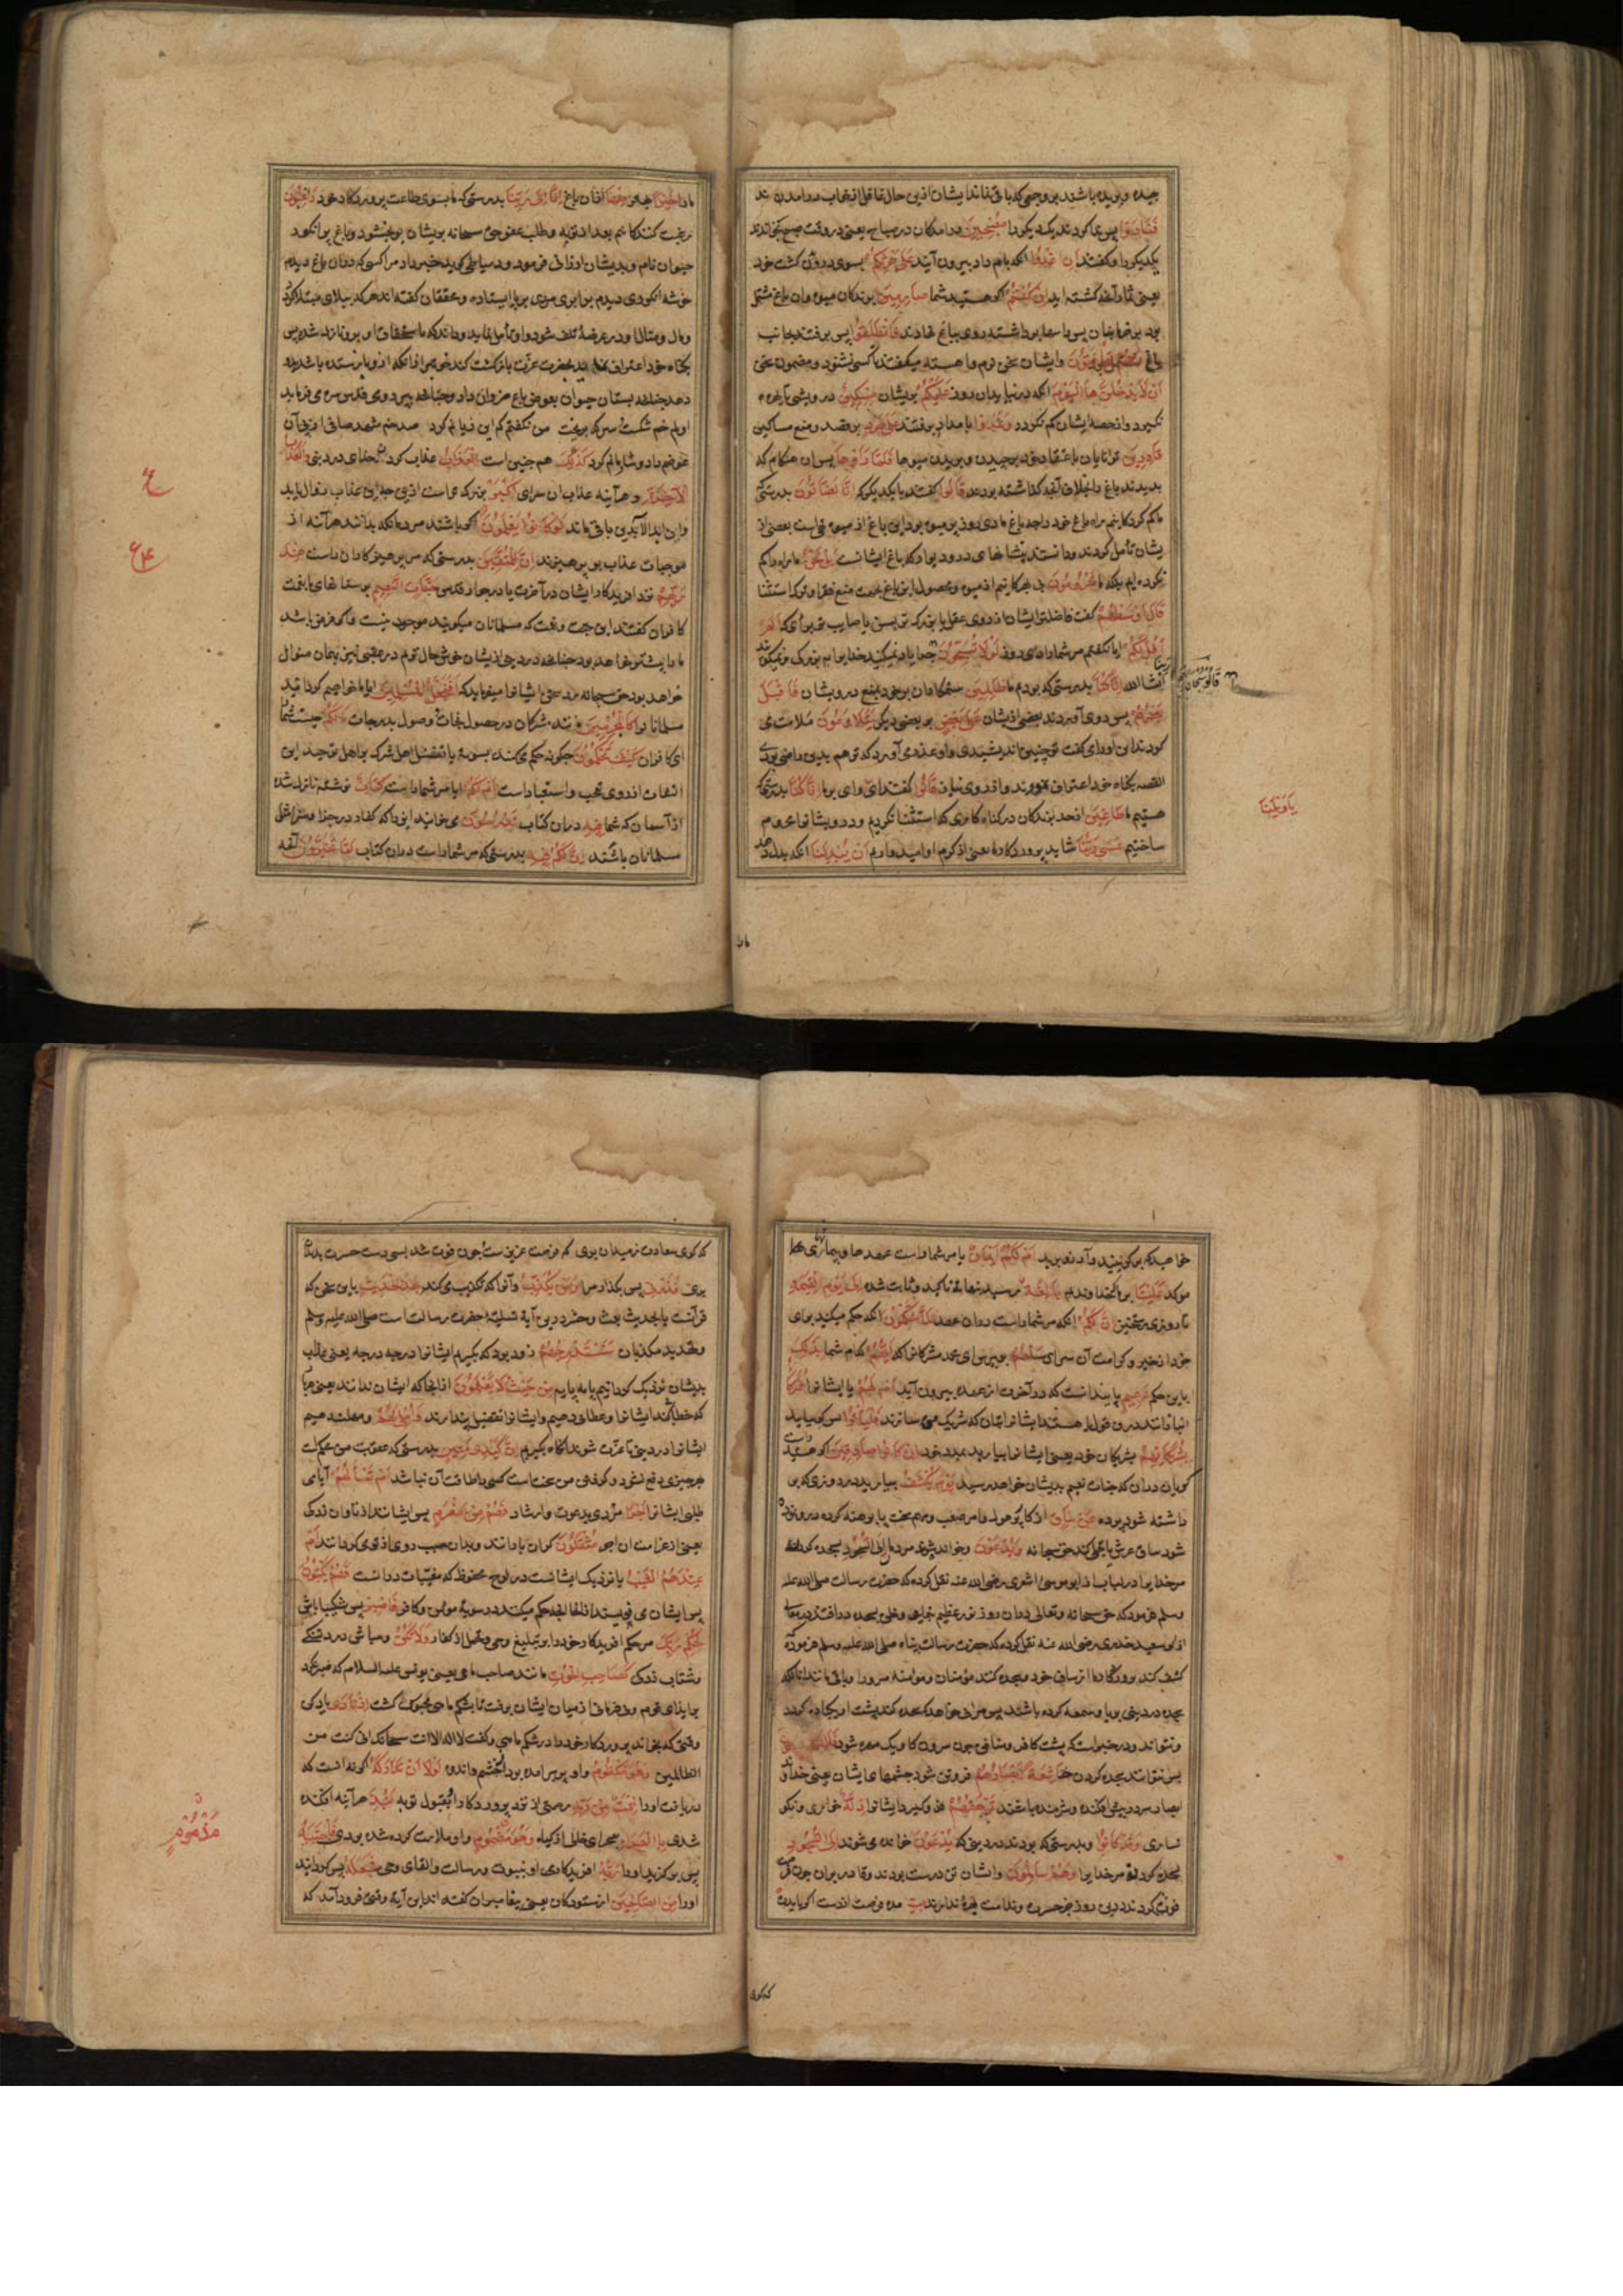 چیده و بریده باشند بر وجهی که باقی نماند ایشان ازین حال غافل از خواب در آمدند
فَتَنَادَوْا پس ندا کردند یک دیگر را مُصْبِحِينَ در آمدکان در صباح یعنی در وقت صبح بخواندند
یکدیگر را و گفتند أَنِ اغْدُوا آنکه بامداد بیرون آیید عَلَى حَرْثِكُمْ بسوی درودن کشت خود
إِنْ كُنْتُمْ اگر هستید شما صَارِمِينَ برندکان میوه وان باغ مشتمل
فَانْطَلَقُوا پس برفتند بجانب
باغ وَهُمْ يَتَخَافَتُونَ و ایشان سخن نرم و اهسته میکفتند تا کسی نشنود و مضمون سخن
أَنْ لَا يَدْخُلَنَّهَا الْيَوْمَ آنکه در نیاید درین روز عَلَيْكُمْ بریشان مِسْكِينٌ درویشی تا بهره
نگیرد و از حصه ایشان کم نگردد وَغَدَوْا بامداد برفتند عَلَى حَرْدٍ بر قصد و منع مساکین
قَادِرِينَ توانایان باعتقاد خود بر چیدن و بریدن میوها فَلَمَّا رَأَوْهَا پس ان هنگام که
بدیدند باغ را بخلاف آنچه گذاشته بودند قَالُوا گفتند با یکدیگر که إِنَّا لَضَالُّونَ بدرستی که
ما گم کردکانیم راه باغ خود را چه باغ ما دی روز پر میوه بود این باغ از میوه خالیست بعضی از
یشان تأمل کردند و دانستند نشانهای در و دیوار که باغ ایشانست بَلْ نَحْنُ ما راه را گم
نکرده ایم بلکه ما مَحْرُومُونَ بی بهرکانیم از میوه و محصول این باغ بجهت منع فقرا و ترک استثنا
قَالَ أَوْسَطُهُمْ گفت فاضلترین ایشان از روی عقل یا بزرکتر بسن یا صایب تر برای که أَلَمْ
أَقُلْ لَكُمْ ایا نگفتم مر شما را دی روز لَوْلَا تُسَبِّحُونَ چرا یاد نمیکنید خدا را به بزرکی و نمیکویند
انشا الله إِنَّا كُنَّا بدرستی که بودیم ما ظَالِمِينَ ستمکاران بر خود بمنع درویشان فَأَقْبَلَ
بَعْضُهُمْ پس روی آوردند بعضی ازیشان عَلَى بَعْضٍ بر بعضی دیگر يَتَلَاوَمُونَ ملامت می
کردند این اورا می گفت تو چنین اندیشیدی و او عذر می آورد که تو هم بدین راضی بودی
القصه بگناه خود اعتراف نمودند و از روی نیاز قَالُوا گفتند ای وای بر ما إِنَّا كُنَّا بدرستی که
هستیم ما طَاغِينَ از حد برندکان در گناه کاری که استثنا نکردیم و درویشانرا محروم
ساختیم عَسَى رَبُّنَا شاید پروردکار ما یعنی از کرم او امید داریم أَنْ يُبْدِلَنَا آنکه بدل دهد
يَاوَيْلَنَا
ما را
ما را خَيْرًا بهتر مِنْهَا ازان باغ إِنَّا إِلَى رَبِّنَا بدرستی که ما بسوی طاعت پروردکار خود رَاغِبُونَ
رغبت کنندکانیم بعد از توبه و طلب عفو حق سبحانه بریشان ببخشود و باغ پر انگور
حیوان نام و بدیشان ارزانی فرمود و در میاطی کوید خبر داد مرا کسی که دران باغ دیدم
خوشه انگوری دیدم برابری مردی بر پا ایستاده و محققان گفته اند هر که ببلای مبتلا گردد
دهد چنانچه بستان حیوان بعوض باغ ضروان داد و چنانچه پیر رومی قدس سره می فرماید
اولم خم شکست سرکه بریخت من نگفتم که این زیانم کرد صد خم شهد صافی از پی آن
عوضم داد و شادمانم کرد كَذَلِكَ هم چنین است الْعَذَابُ عذاب کردن خدای در دنیا وَلَعَذَابُ
الْآخِرَةِ و هر آینه عذاب ان سرای أَكْبَرُ بزرکتر است ازین چه این عذاب بزوال آید
وان ابد الآبدین باقی ماند لَوْ كَانُوا يَعْلَمُونَ اگر باشند مردمانکه بدانند هر آینه از
موجبات عذاب بپرهیزند إِنَّ لِلْمُتَّقِينَ بدرستی که مر پرهیزکاران راست عِنْدَ
رَبِّهِمْ نزد افریدکار ایشان در آخرت یا در جوار قدس جَنَّاتِ النَّعِيمِ بوستانهای با نعمت
کافران گفتند این جنت و نعمت که مسلمانان میکویند موجود نیست و اگر فرض باشد
ما را بیشتر خواهد بود چنانچه در دنیا ازیشان خوش حال تریم در عقبی نیز بهمان منوال
خواهد بود حق سبحانه رد سخن ایشانرا میفرماید که أَفَنَجْعَلُ الْمُسْلِمِينَ ایا ما خواهیم کردانید
مسلمانانرا كَالْمُجْرِمِينَ مانند مشرکان در حصول نجات و وصول بدرجات مَا لَكُمْ چیست شما را
ای کافران كَيْفَ تَحْكُمُونَ چگونه حکم می کنید بسویه یا تفضیل اهل شرک بر اهل توحید این
استفهام از روی تعجب و استبعاد است أَمْ لَكُمْ ایا مر شما راست كِتَابٌ نوشته نازل شده
از آسمان که شما فِيهِ دران کتاب تَدْرُسُونَ می خوانید
مسلمانان باشند إِنَّ لَكُمْ فِيهِ بدرستی که مر شما راست دران کتاب لَمَا تَخَيَّرُونَ آنچه
ع
ع۴
خواهید که برگزینید و آرزو برید أَمْ لَكُمْ أَيْمَانٌ یا مر شما راست عهدها و پیمانهای
موکد عَلَيْنَا بر ما بخداوندیم بَالِغَةٌ رسیده بنهایه تاکید و ثابت شده إِلَى يَوْمِ الْقِيَمَةِ
تا روز رستخیز إِنَّ لَكُمْ آنکه مر شما راست دران عهد لَمَا تَحْكُمُونَ آنکه حکم میکنید برای
خود از خیر و کرامت آن سرای سَلْهُمْ بپرس ای محمد مشرکانرا که أَيُّهُمْ کدام شما بِذَلِكَ
باین حکم زَعِيمٌ پایندانست که در آخرت از عهده بیرون آید أَمْ لَهُمْ یا ایشانرا شُرَكَاءُ
فَلْيَأْتُوا پس گو بیایند
بِشُرَكَائِهِمْ بشریکان خود یعنی ایشانرا بیارید بمدد خود إِنْ كَانُوا صَادِقِينَ اگر هستند
گویان دران که جنات نعیم بدیشان خواهد رسید يَوْمَ يُكْشَفُ بیارید در روزی که بر
داشته شود پرده عَنْ سَاقٍ از کار پر هول و امر صعب و مهم سخت یا برهنه کرده
شود ساق عرش یا تجلی کند حق سبحانه وَيُدْعَوْنَ و خوانده شوند مردمان إِلَى السُّجُودِ بسجده کردن
مر خدا را در لباب از ابو موسی اشعری رضی الله عنه نقل کرده که حضرت رسالت صلی الله علیه
وسلم فرمود که حق سبحانه وتعالی دران روز نور عظیم نماید و خلق بسجده در افتند
از ابو سعید خدری رضی الله عنه نقل کرده که حضرت رسالت پناه صلی الله علیه وسلم فرموده
کشف کند پروردکار ما از ساق خود و سجده کنند مؤمنان و مؤمنه مر او را و باقی مانند آنانکه
سجده در دنیا بریا و سمعه کرده باشند پس هر آنی خواهد که سجده کند پشت او یکپاره گردد
و نتواند و در خبر است که پشت کافر و منافق چون سرون گاو یک مهره شود فَلَا يَسْتَطِيعُونَ
پس نتوانند سجده کردن خَاشِعَةً أَبْصَارُهُمْ فروتن شود چشمهای ایشان یعنی خداوندان
ابصار سر در پیش افکنده و شرمنده باشند تَرْهَقُهُمْ فرو گیرد ایشانرا ذِلَّةٌ خواری و نگو
نساری وَقَدْ كَانُوا و بدرستی که بودند در دنیا که يُدْعَوْنَ خوانده می شوند إِلَى السُّجُودِ
بسجده کردن مر خدا را وَهُمْ سَالِمُونَ و ایشان تن درست بودند و قادر بران چون فرصت
فوت کردند درین روز جز حسرت و ندامت بهره ندارند بیت مده فرصت از دست گر بایدت
که گوی
که گوی سعادت ز میدان بری که فرصت عزیزست چون فوت شد بسی دست حسرت بدندان
بری فَذَرْنِي پس بگذار مرا وَمَنْ يُكَذِّبُ و آنرا که تکذیب می کند بِهَذَا الْحَدِيثِ باین سخن که
قرآنست یا بحدیث بعث و حشر درین آیه تسلیه حضرت رسالت است صلی الله علیه وسلم
و تهدید مکذبان سَنَسْتَدْرِجُهُمْ زود بود که بگیریم ایشانرا درجه درجه یعنی عذاب
بدیشان نزدیک گردانیم پایه پایه مِنْ حَيْثُ لَا يَعْلَمُونَ از انجا که ایشان ندانند یعنی هر بار
که خطا کنند ایشانرا عطای دهیم و ایشانرا تفضیل پندارند وَأُمْلِي لَهُمْ و مهلت دهیم
ایشانرا در دنیا تا عزت شوند ناگاه بگیریم إِنَّ كَيْدِي مَتِينٌ بدرستی که عقوبت من محکم است
بهر چیزی دفع نشود و گرفتن من سخت است کسی را طاقت آن نباشد أَمْ تَسْأَلُهُمْ آیا می
طلبی ایشانرا أَجْرًا مزدی بدعوت و ارشاد فَهُمْ مِنْ مَغْرَمٍ پس ایشانند از تاوان زدگی
یعنی از غرامت ان اجر مُثْقَلُونَ گران بارانند و بدان سبب روی از تو می گردانند أَمْ
عِنْدَهُمُ الْغَيْبُ یا نزدیک ایشانست در لوح محفوظ که مغیبات درانست فَهُمْ يَكْتُبُونَ
پس ایشان می نویسند از آنجا آنچه حکم میکنند در سویه مومن و کافر فَاصْبِرْ پس شکیبا باش
لِحُكْمِ رَبِّكَ مر حکم افریدکار خود را بر تبلیغ وحی و تحمل از کفار وَلَا تَكُنْ و مباش در دل تنگی
و شتاب زدگی كَصَاحِبِ الْحُوتِ مانند صاحب ماهی یعنی یونس علیه السلام که صبر نکرد
بر ایذای قوم و بی فرمانی از میان ایشان برفت تا بشکم ماهی محبوس گشت إِذْ نَادَى یاد کن
وقتی که بخواند پروردکار خود را در شکم ماهی و گفت لا اله الا انت سبحانک انی کنت من
الظالمین وَهُوَ مَكْظُومٌ و او پر برآمده بود از خشم و اندوه لَوْلَا أَنْ تَدَارَكَهُ اگر نه انست که
دریافت اورا نِعْمَةٌ مِنْ رَبِّهِ رحمتی از نزد پروردکار او بقبول توبه لَنُبِذَ هر آینه افکنده
شدی بِالْعَرَاءِ بصحرای خالی از گیاه وَهُوَ مَذْمُومٌ و او ملامت کرده شده بودی فَاجْتَبَاهُ
پس برگزید اورا رَبُّهُ افریدکار وی او بنبوت و رسالت و القای وحی فَجَعَلَهُ پس گردانید
اورا مِنَ الصَّالِحِينَ از ستودکان یعنی پیغامبران گفته اند این آیة وقتی فرود آمد که
مَذْمُومٍ